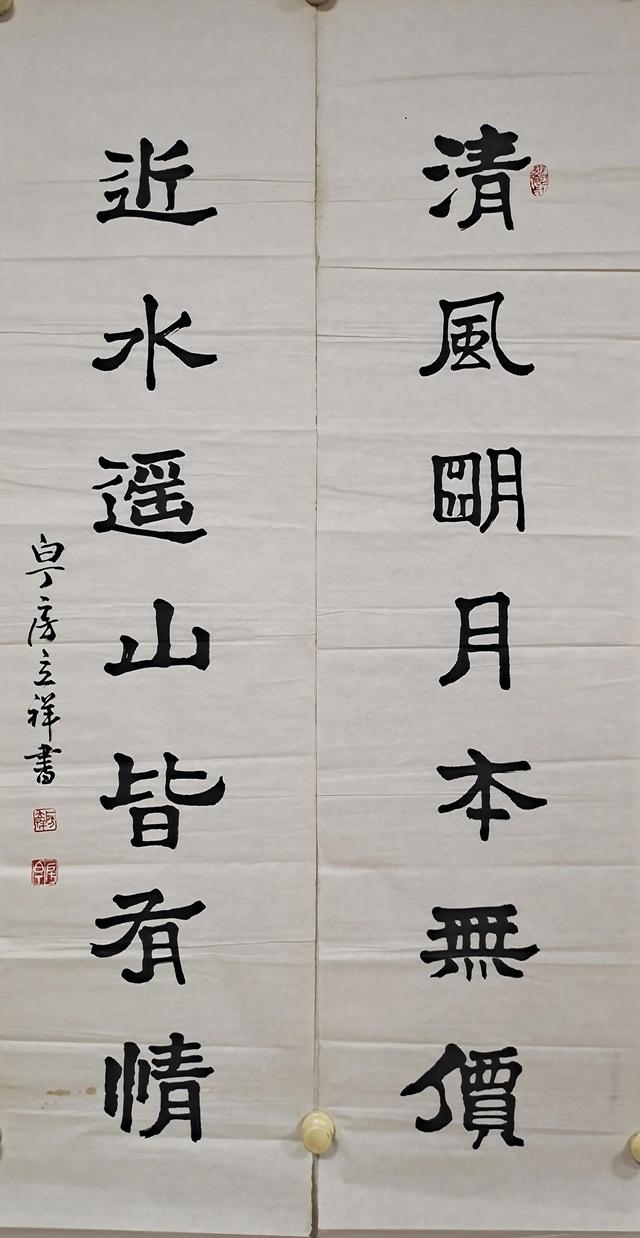 清風明月本無價
近水遥山皆有情
白丁房立祥書